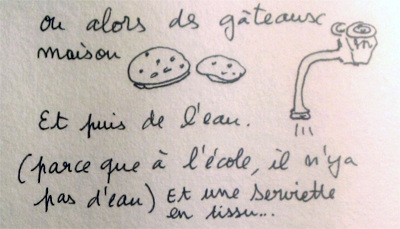 ou alors des gâteaux
maison
Et puis de l'eau.
(parce que à l'école, il n'ya
pas d'eau) Et une serviette
en tissu...